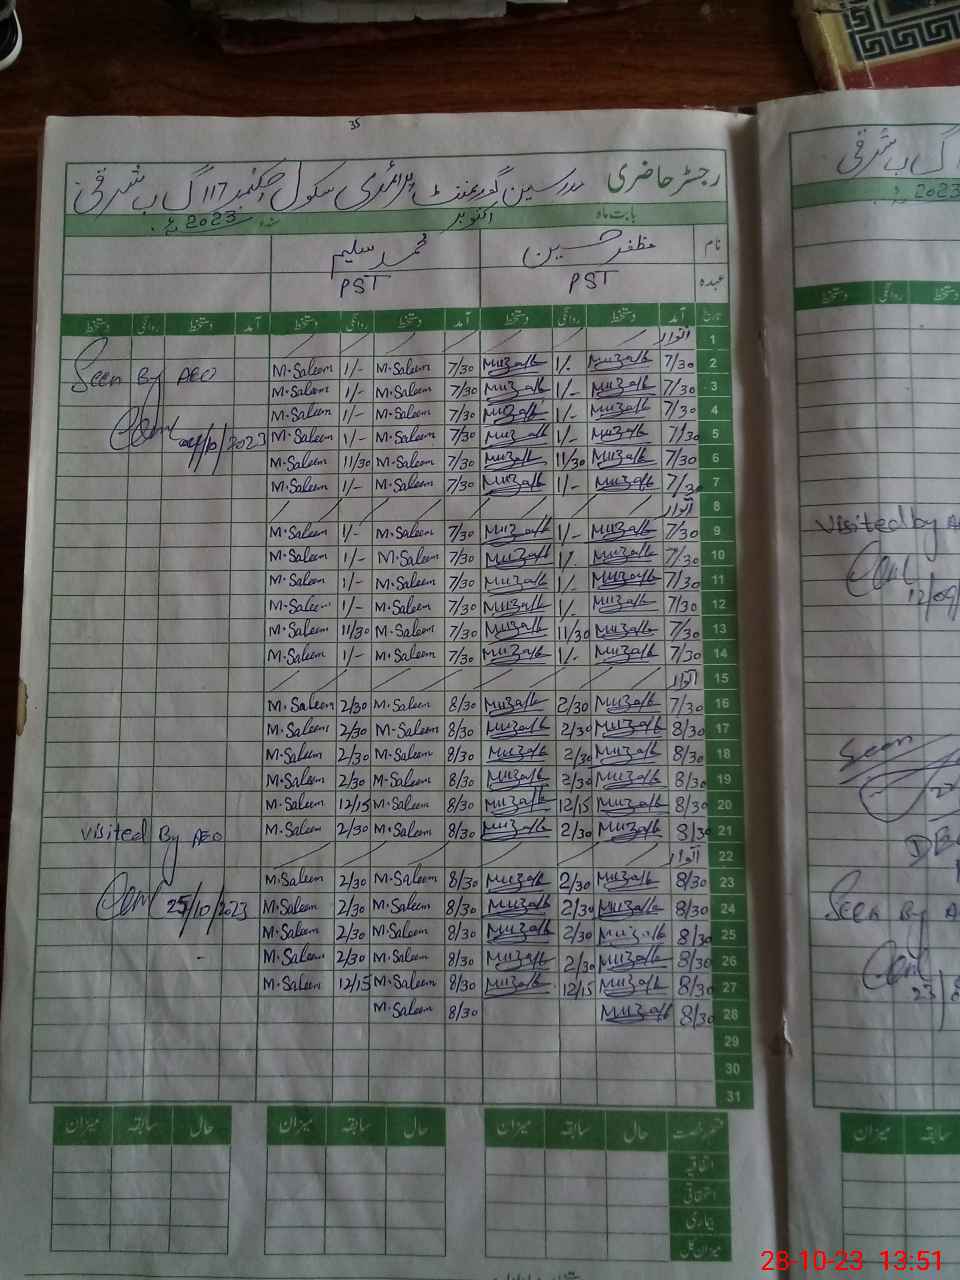 35
رجسٹر حاضری مدرسین گورنمنٹ پرائمری سکول چکنمبر 117 گ ب شرقی
بابت ماہ اکتوبر سنہ 2023ء
نام مظفر حسین محمد سلیم
عہدہ PST PST
تاریخ آمد دستخط روانگی دستخط آمد دستخط روانگی دستخط آمد دستخط روانگی دستخط
1 اتوار
2 7/30 Muzaffar 1/- Muzaffar 7/30 M.Saleem 1/- M.Saleem
3 7/30 Muzaffar 1/- Muzaffar 7/30 M.Saleem 1/- M.Saleem
4 7/30 Muzaffar 1/- Muzaffar 7/30 M.Saleem 1/- M.Saleem
5 7/30 Muzaffar 1/- Muzaffar 7/30 M.Saleem 1/- M.Saleem
6 7/30 Muzaffar 11/30 Muzaffar 7/30 M.Saleem 11/30 M.Saleem
7 7/30 Muzaffar 1/- Muzaffar 7/30 M.Saleem 1/- M.Saleem
8 اتوار
9 7/30 Muzaffar 1/- Muzaffar 7/30 M.Saleem 1/- M.Saleem
10 7/30 Muzaffar 1/- Muzaffar 7/30 M.Saleem 1/- M.Saleem
11 7/30 Muzaffar 1/- Muzaffar 7/30 M.Saleem 1/- M.Saleem
12 7/30 Muzaffar 1/- Muzaffar 7/30 M.Saleem 1/- M.Saleem
13 7/30 Muzaffar 11/30 Muzaffar 7/30 M.Saleem 11/30 M.Saleem
14 7/30 Muzaffar 1/- Muzaffar 7/30 M.Saleem 1/- M.Saleem
15 اتوار
16 7/30 Muzaffar 2/30 Muzaffar 8/30 M.Saleem 2/30 M.Saleem
17 8/30 Muzaffar 2/30 Muzaffar 8/30 M.Saleem 2/30 M.Saleem
18 8/30 Muzaffar 2/30 Muzaffar 8/30 M.Saleem 2/30 M.Saleem
19 8/30 Muzaffar 2/30 Muzaffar 8/30 M.Saleem 2/30 M.Saleem
20 8/30 Muzaffar 12/15 Muzaffar 8/30 M.Saleem 12/15 M.Saleem
21 8/30 Muzaffar 2/30 Muzaffar 8/30 M.Saleem 2/30 M.Saleem
22 اتوار
23 8/30 Muzaffar 2/30 Muzaffar 8/30 M.Saleem 2/30 M.Saleem
24 8/30 Muzaffar 2/30 Muzaffar 8/30 M.Saleem 2/30 M.Saleem
25 8/30 Muzaffar 2/30 Muzaffar 8/30 M.Saleem 2/30 M.Saleem
26 8/30 Muzaffar 2/30 Muzaffar 8/30 M.Saleem 2/30 M.Saleem
27 8/30 Muzaffar 12/15 Muzaffar 8/30 M.Saleem 12/15 M.Saleem
28 8/30 Muzaffar 8/30 M.Saleem
29
30
31
Seen By AEO
04/10/2023
Visited By AEO
25/10/2023
رخصت حال سابقہ میزان حال سابقہ میزان حال سابقہ میزان
اتفاقیہ
استحقاقی
بیماری
میزان کل
گ ب شرقی
2023ء
Visited by
12/09
Seen
Seen By
23/
میزان سابقہ
28-10-23 13:51